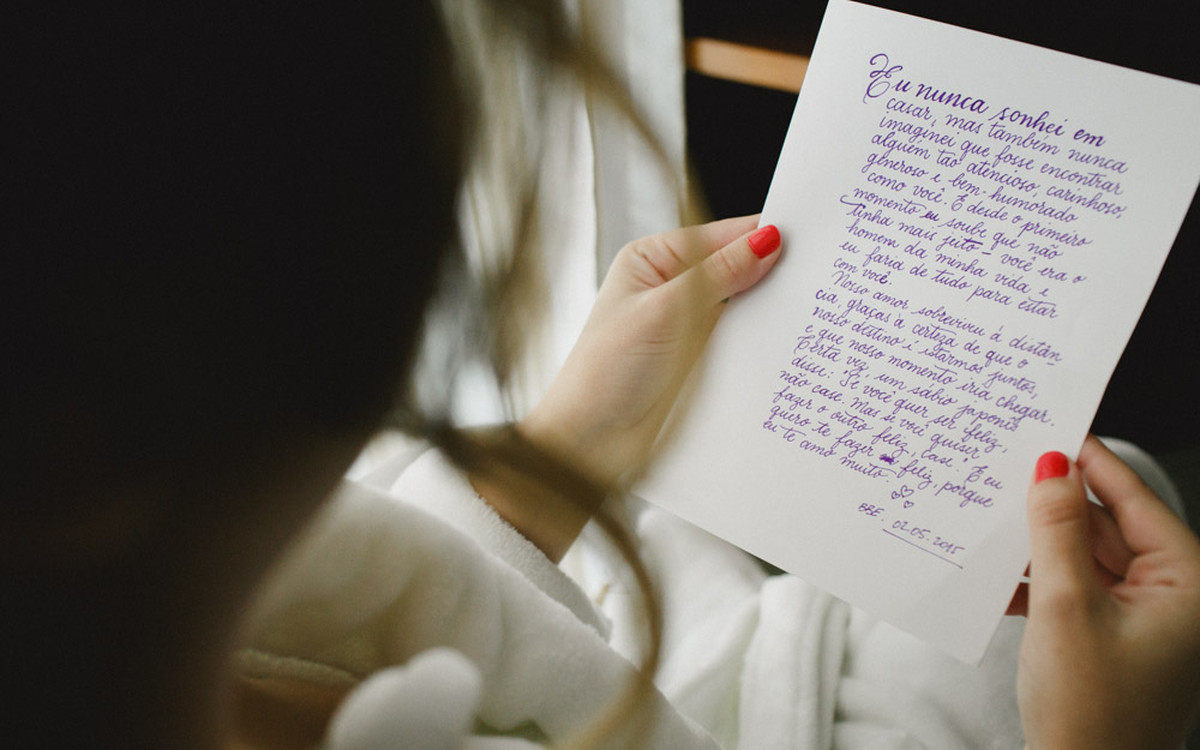 Eu nunca sonhei em
casar, mas também nunca
imaginei que fosse encontrar
alguém tão atencioso, carinhoso,
generoso e bem-humorado
como você. E desde o primeiro
momento eu soube que não
tinha mais jeito - você era o
homem da minha vida e
eu faria de tudo para estar
com você.
Nosso amor sobreviveu à distân
cia, graças à certeza de que o
nosso destino é estarmos juntos,
e que nosso momento iria chegar.
Certa vez, um sábio japonês
disse: "Se você quer ser feliz,
não case. Mas se você quiser
fazer o outro feliz, case." E eu
quero te fazer feliz, porque
eu te amo muito.
BBE. 02.05.2015